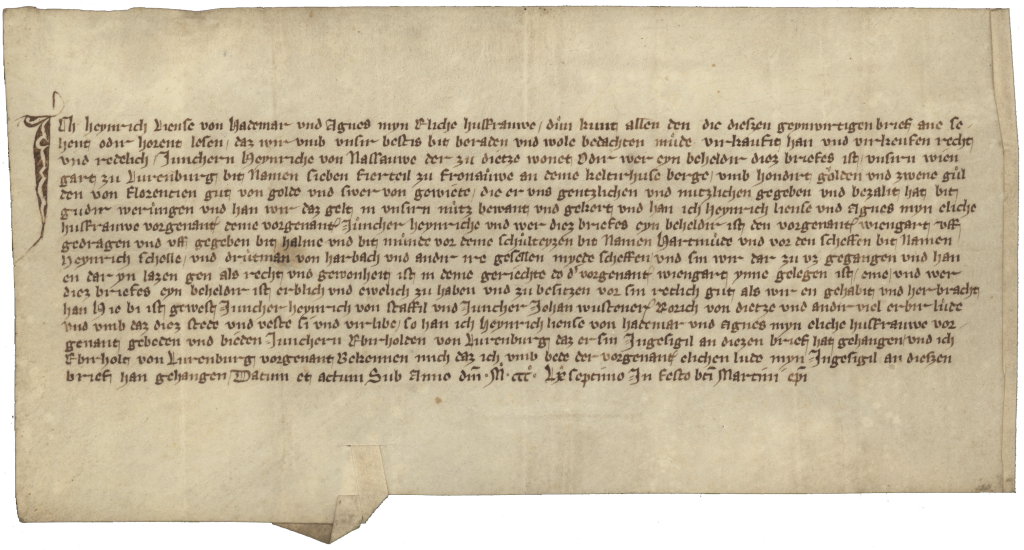 Ich heynrich liense von hademar vnd Agnes myn eliche husfrauwe / dun kunt allen den die dieszen geynwirtigen brief ane se-
hent odir horent lesen / daz wir vmb vnsir bestis bit beraden vnd wole bedachten mude virkauft han vnd virkeufen recht
vnd redelich / Junchern heynriche von Nassauwe der zu dietze wonet Odir wer eyn beheldir diez briefes ist / vnsirn wien
gart zu Lurenburg bit Namen sieben fierteil zu fronauwe an deme kelturhuse berge / vmb hondirt gulden vnd zwene gul
den von florencien gut von golde vnd swer von gewiete / die er vns gentzlichen vnd nutzlichen gegeben vnd bezalit hat bit
gudir werungen vnd han wir daz gelt in vnsirn nutz bewant vnd gekert vnd han ich heynrich liense vnd Agnes myn eliche
husfrauwe vorgenant deme vorgenant Juncher heynriche vnd wer diez briefes eyn beheldir ist den vorgenant wiengart vff
gedragen vnd vff gegeben bit halme vnd bit munde vor deme schulteyzen bit Namen hartmude vnd vor den scheffen bit Namen
heynrich schelle / vnd drutman von harbach vnd andir ire gesellen myede scheffen vnd sin wir dar zu vz gegangen vnd han
en dar yn lazen gen als recht vnd gewonheit ist in deme gerichte do d' vorgenant wiengart ynne gelegen ist / eme / vnd wer
diez briefes eyn beheldir ist erblich vnd ewelich zu haben vnd zu besitzen vor sin retlich gut / als wir en gehabit vnd her bracht
han hie bi ist gewest Juncher heynrich von staffil vnd Juncher Johan wustener / Rorich von dietze vnd andir viel erbir lude
vnd vmb daz diez stede vnd veste si vnd virlibe / so han ich heynrich liense von hademar vnd Agnes myn eliche husfrauwe vor
genant gebeden vnd bieden Junchern Ebirholden von Lurenburg daz er sin Ingesigil an diezen brief hat gehangen / vnd ich
Ebirholt von Lurenburg vorgenant Bekennen mich daz ich vmb bede der vorgenant elichen lude myn Ingesigil an dieszen
brief han gehangen / Datum et actum Sub Anno dm̄ · M · ccc° · Lx septimo In festo btī Martini epī